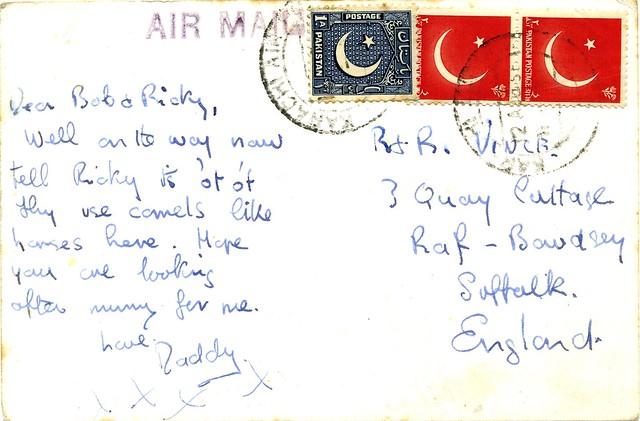 AIR MAIL
1A. POSTAGE
PAKISTAN
PAKISTAN POSTAGE
KARACHI AIR
Dear Bob & Ricky,
Well on the way now
tell Ricky its 'ot 'ot
they use camels like
horses here. Hope
you are looking
after mummy for me.
love.
Daddy
X X X X
R & R. VINCE.
3 Quay Cottage
Raf - Bawdsey
Suffolk.
England.